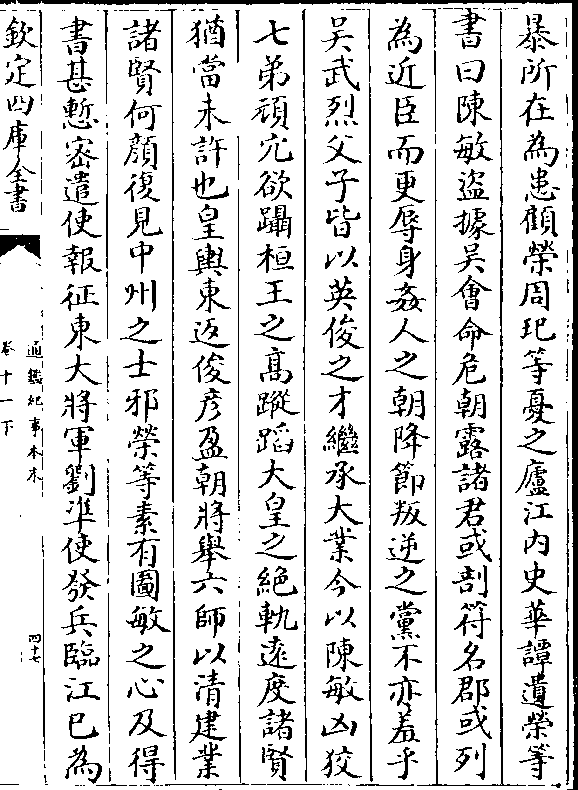 暴所在為患顧榮周玘等憂之廬江内史華譚遺榮等
書曰陳敏盜據吳會命危朝露諸君或剖符名郡或列
為近臣而更辱身姦人之朝降節叛逆之黨不亦羞乎
吳武烈父子皆以英俊之才繼承大業今以陳敏凶狡
七弟頑冗欲躡桓王之髙蹤蹈大皇之絶軌逺度諸賢
猶當未許也皇輿東返俊彦盈朝將舉六師以清建業
諸賢何顔復見中州之士邪榮等素有圖敏之心及得
書甚慙宻遣使報征東大將軍劉準使發兵臨江已為
欽定四庫全書
通鑑紀事本末
卷十一下
四十七